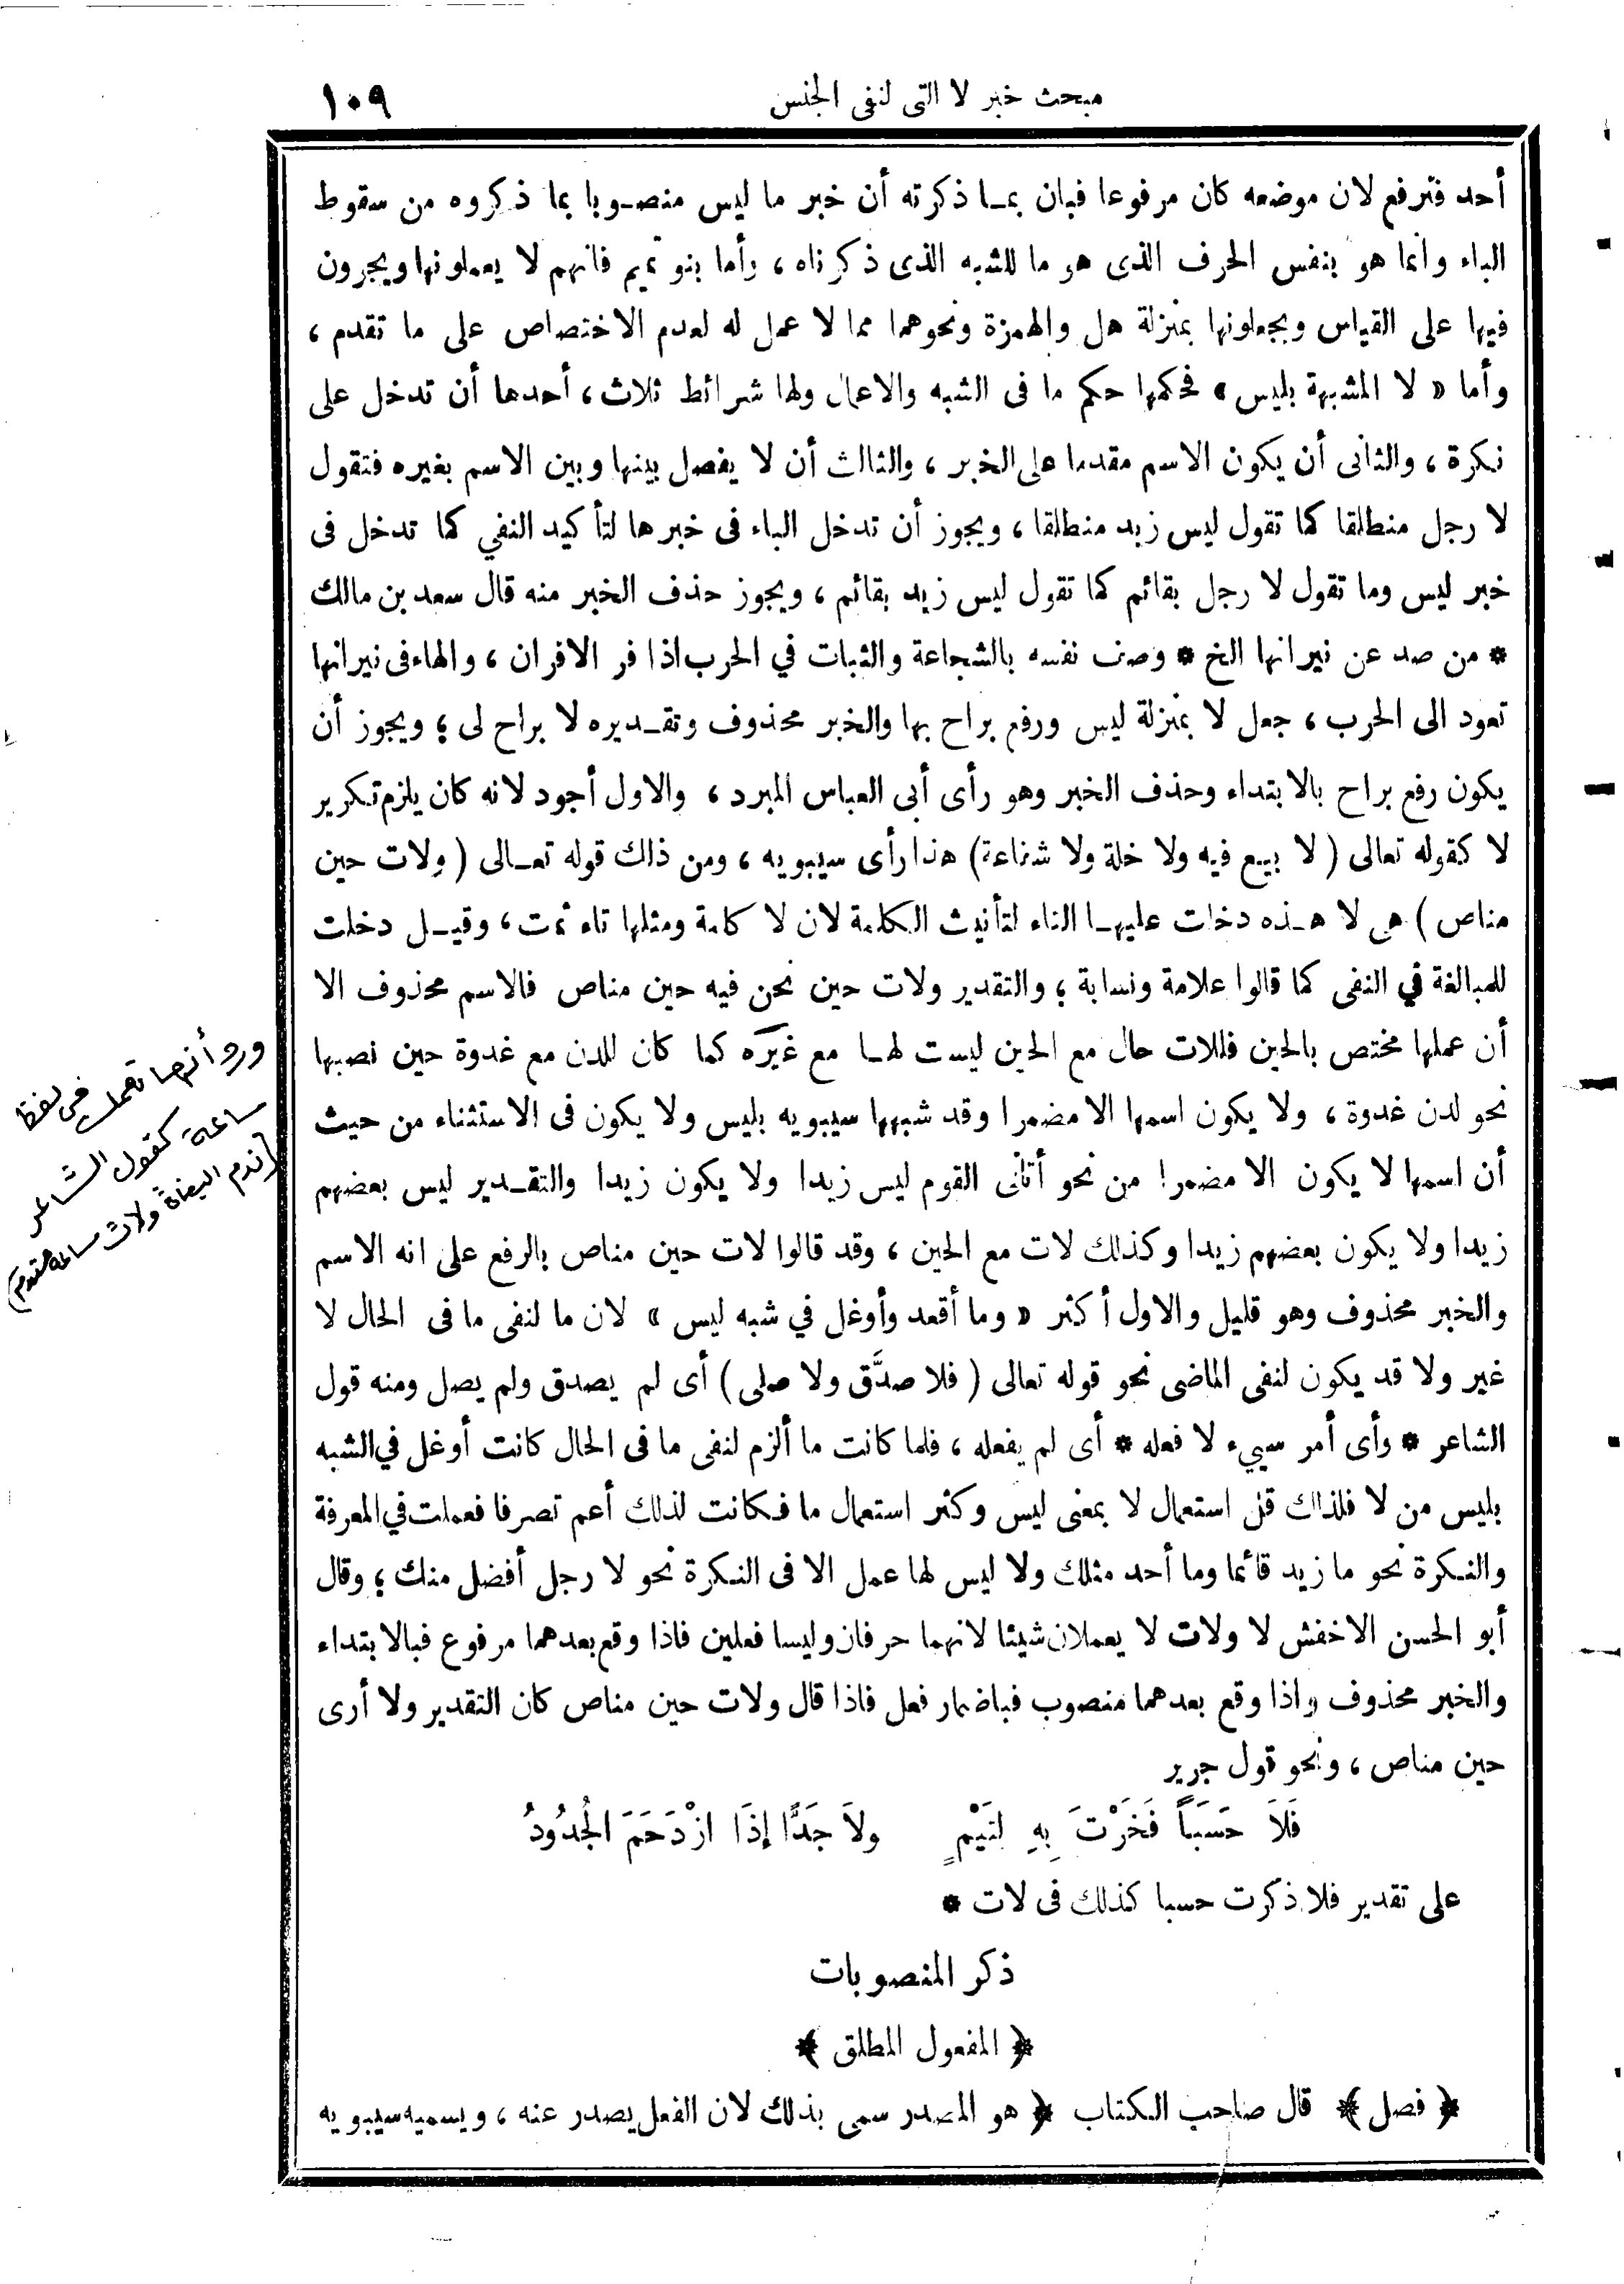 مبحث خبر لا التى لنفى الجنس
١٠٩
أحد فترفع لان موضعه كان مرفوعا فبان بمـا ذكرته أن خبر ما ليس منصـوبا بما ذكروه من سقوط
الباء وانما هو بنفس الحرف الذى هو ما للشبه الذى ذكرناه ، وأما بنو تميم فانهم لا يعملونها ويجرون
فيها على القياس ويجعلونها بمنزلة هل والهمزة ونحوهما مما لا عمل له لعدم الاختصاص على ما تقدم ،
وأما « لا المشبهة بليس » فحكمها حكم ما فى الشبه والاعمال ولها شرائط ثلاث ، أحدها أن تدخل على
نكرة ، والثانى أن يكون الاسم مقدما على الخبر ، والثالث أن لا يفصل بينها وبين الاسم بغيره فتقول
لا رجل منطلقا كما تقول ليس زيد منطلقا ، ويجوز أن تدخل الباء فى خبرها لتأكيد النفي كما تدخل فى
خبر ليس وما تقول لا رجل بقائم كما تقول ليس زيد بقائم ، ويجوز حذف الخبر منه قال سعد بن مالك
* من صد عن نيرانها الخ * وصف نفسه بالشجاعة والثبات في الحرب اذا فر الاقران ، والهاء فى نيرانها
تعود الى الحرب ، جعل لا بمنزلة ليس ورفع براح بها والخبر محذوف وتقـديره لا براح لى ؛ ويجوز أن
يكون رفع براح بالابتداء وحذف الخبر وهو رأى أبى العباس المبرد ، والاول أجود لانه كان يلزم تكرير
لا كقوله تعالى ( لا بيع فيه ولا خلة ولا شفاعة ) هذا رأى سيبويه ، ومن ذلك قوله تعـالى ( ولات حين
مناص ) هى لا هـذه دخلت عليهـا التاء لتأنيث الكلمة لان لا كلمة ومثلها تاء ثمت ، وقيـل دخلت
للمبالغة في النفى كما قالوا علامة ونسابة ؛ والتقدير ولات حين نحن فيه حين مناص فالاسم محذوف الا
أن عملها مختص بالحين فللات حال مع الحين ليست لهـا مع غيره كما كان للدن مع غدوة حين نصبها
نحو لدن غدوة ، ولا يكون اسمها الا مضمرا وقد شبهها سيبويه بليس ولا يكون فى الاستثناء من حيث
أن اسمها لا يكون الا مضمرا من نحو أتانى القوم ليس زيدا ولا يكون زيدا والتقـدير ليس بعضهم
زيدا ولا يكون بعضهم زيدا وكذلك لات مع الحين ، وقد قالوا لات حين مناص بالرفع على انه الاسم
والخبر محذوف وهو قليل والاول أكثر « وما أقعد وأوغل في شبه ليس » لان ما لنفى ما فى الحال لا
غير ولا قد يكون لنفى الماضى نحو قوله تعالى ( فلا صدَّق ولا صلى ) أى لم يصدق ولم يصل ومنه قول
الشاعر * وأى أمر سييء لا فعله * أى لم يفعله ، فلما كانت ما ألزم لنفى ما فى الحال كانت أوغل في الشبه
بليس من لا فلذلك قل استعمال لا بمعنى ليس وكثر استعمال ما فكانت لذلك أعم تصرفا فعملت في المعرفة
والنكرة نحو ما زيد قائما وما أحد مثلك ولا ليس لها عمل الا فى النكرة نحو لا رجل أفضل منك ؛ وقال
أبو الحسن الاخفش لا ولات لا يعملان شيئا لانهما حرفان وليسا فعلين فاذا وقع بعدهما مرفوع فبالابتداء
والخبر محذوف واذا وقع بعدهما منصوب فباضمار فعل فاذا قال ولات حين مناص كان التقدير ولا أرى
حين مناص ، ونحو قول جرير
فَلَا حَسَبَاً فَخَرْتَ بِهِ لتَيْمٍ ولَا جَدًّا إِذَا ازْدَحَمَ الْجُدُودُ
على تقدير فلا ذكرت حسبا كذلك فى لات *
ذكر المنصوبات
﴿ المفعول المطلق ﴾
﴿ فصل ﴾ قال صاحب الكتاب ﴿ هو المصدر سمى بذلك لان الفعل يصدر عنه ، ويسميه سيبويه
ورد أنها تعمل فى لفظ
ساعة كقول الشاعر
(ندم البغاة ولات ساعة مندم)